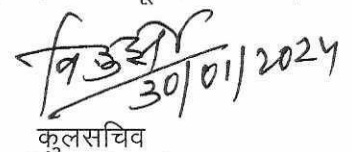 30/01/2024
कुलसचिव